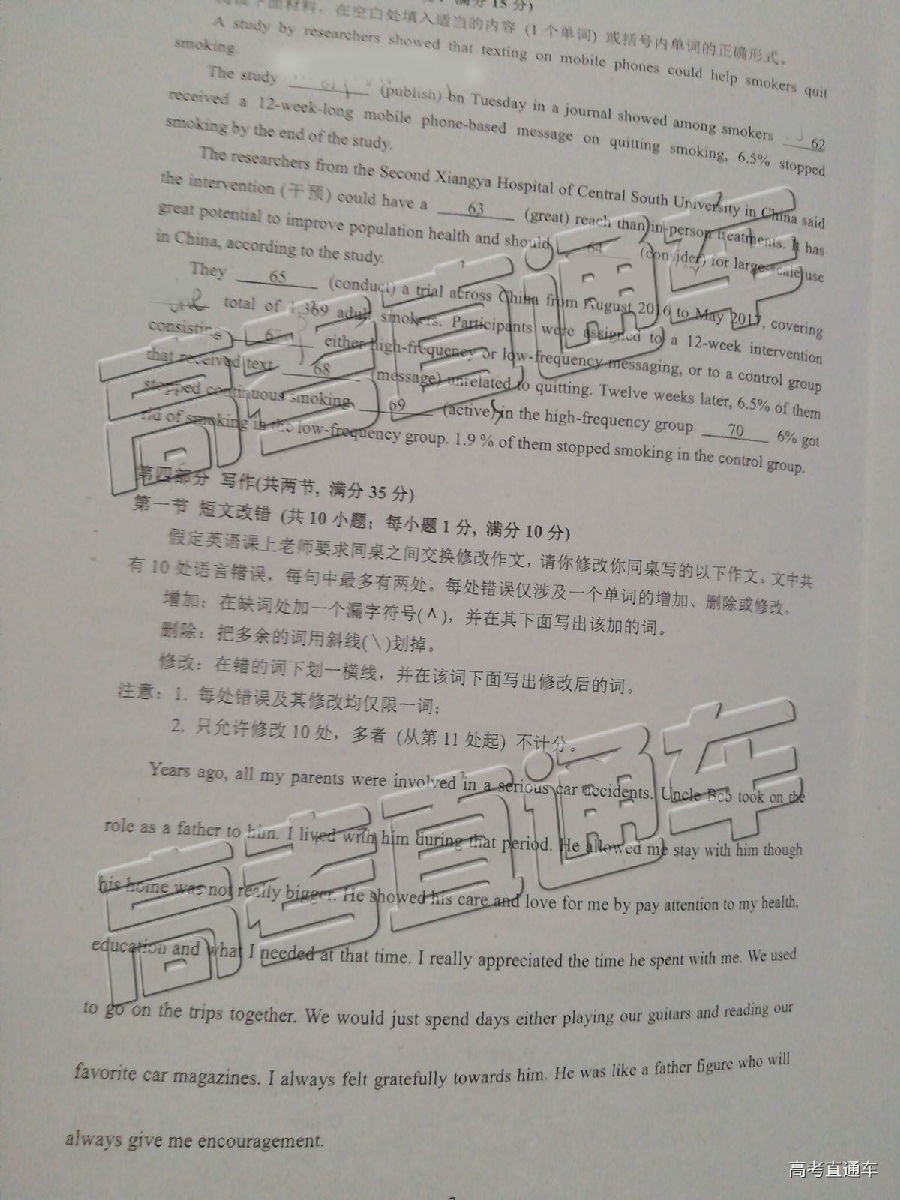 满分 15 分)
阅读下面材料，在空白处填入适当的内容 (1 个单词) 或括号内单词的正确形式。
A study by researchers showed that texting on mobile phones could help smokers quit
smoking.
The study 61 (publish) on Tuesday in a journal showed among smokers 62
received a 12-week-long mobile phone-based message on quitting smoking, 6.5% stopped
smoking by the end of the study.
The researchers from the Second Xiangya Hospital of Central South University in China said
the intervention (干预) could have a 63 (great) reach than in-person treatments. It has
great potential to improve population health and should 64 (consider) for large-scale use
in China, according to the study.
They 65 (conduct) a trial across China from August 2016 to May 2017, covering
total of 1,369 adult smokers. Participants were assigned to a 12-week intervention
consisting 67 either high-frequency or low-frequency messaging, or to a control group
that received text 68 (message) unrelated to quitting. Twelve weeks later, 6.5% of them
stopped continuous smoking 69 (active) in the high-frequency group 70 6% got
rid of smoking in the low-frequency group. 1.9 % of them stopped smoking in the control group.
第四部分 写作(共两节, 满分 35 分)
第一节 短文改错 (共 10 小题; 每小题 1 分, 满分 10 分)
假定英语课上老师要求同桌之间交换修改作文，请你修改你同桌写的以下作文。文中共
有 10 处语言错误，每句中最多有两处。每处错误仅涉及一个单词的增加、删除或修改。
增加：在缺词处加一个漏字符号(∧)，并在其下面写出该加的词。
删除：把多余的词用斜线(\)划掉。
修改：在错的词下划一横线，并在该词下面写出修改后的词。
注意：1. 每处错误及其修改均仅限一词;
2. 只允许修改 10 处，多者 (从第 11 处起) 不计分。
Years ago, all my parents were involved in a serious car accidents. Uncle Bob took on the
role as a father to him. I lived with him during that period. He allowed me stay with him though
his home was not really bigger. He showed his care and love for me by pay attention to my health,
education and what I needed at that time. I really appreciated the time he spent with me. We used
to go on the trips together. We would just spend days either playing our guitars and reading our
favorite car magazines. I always felt gratefully towards him. He was like a father figure who will
always give me encouragement.
高考直通车
高考直通车
高考直通车